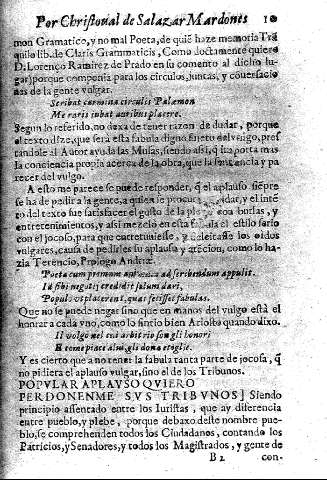 Por Christoual de Salazar Mardones 10
mon Gramatico, y no mal Poeta, de quiē haze memoria Trā
quilo lib. de Claris Grammaticis, Como doctamente quiere
D. Lorenço Ramirez de Prado en su comento al dicho lu-
gar) porque componia para los circulos, juntas, y cōuersacio
nes de la gente vulgar.
Scribat carmina circulis Palæmon
Me raris iubat auribus placere.
Segun lo referido, no dexa de tener razon de dudar, porque
el texto dize, que será esta fabula digno sujeto del vulgo, pres
tandole al Autor ayuda las Musas; siendo assi, q̄ ha porta mas
la conciencia propia acerca de la obra, que la sentencia y pa
recer del vulgo.
A esto me parece se puede responder, q̄ el aplauso siēpre
se ha de pedir a la gente, a quien se procura agradar, y el inte
to del texto fue satisfacer el gusto de la plebe con burlas, y
entretenimientos, y assi mezclò en esta fabula el estilo serio
con el jocoso, para que entretuuiesse, y deleitasse los oidos
vulgares, causa de pedirles su aplauso y atēcion, como lo ha-
zia Terencio, Prologo Andriæ
Poeta cum primum animum ad scribendum appulit.
Id sibi negotij credidit solum dari,
Populo vt placerent, quas fecisset fabulas.
Que no se puede negar sino que en manos del vulgo està el
honrar a cada vno, como lo sintio bien Ariosto quando dixo.
Il volgo nel cui arbitrio son gli honori
E come piace a lui, gli dona e toglie.
Y es cierto que a no tener la fabula tanta parte de jocosa, q̄
no pidiera el aplauso vulgar, sino el de los Tribunos.
POPVLAR APLAVSO QVIERO
PERDONENME SVS TRIBVNOS] Siendo
principio assentado entre los Iuristas, que ay diferencia
entre pueblo, y plebe, porque debaxo deste nombre pue-
blo, se comprehenden todos los Ciudadanos, contando los
Patricios, y Senadores, y todos los Magistrados, y gente de
B 2 con-